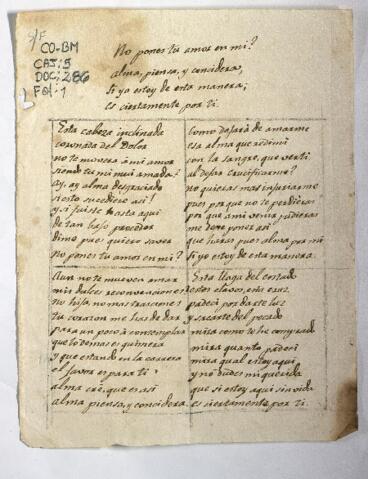 S/F
CO-BM
CAJ: 5
DOC; 286
Fol: 1
No pones tu amor en mi?
alma, piensa, y concidera,
Si yo estoy de esta manera;
es ciertamente por ti.
Esta cabeza inclinada
coronada del Dolor
no te movera à mi amor
siendo tu mi muì amada?
ay, ay alma desgraciado
si esto sucediere asi!
y si fuiste hasta aqui
de tan baso proceder
dime pues quiero saver
no pones tu amor en mi?
como dejarà de amarme
esa alma que redimi
con la sangre, que verti,
al dejar crucificarme?
no quieras mas injuriarme
pues por que no te perdieras
por que a mi venir pudieras
me dexe poner asi
que haras pues alma por mi
Si yo estoy de esta manera.
Aun no te mueven amar
mis dulces reconvenciones
no hija, no mas traciones
tu corazon me has de dar
para un poco à contemplar
que lo demas es quimera
y que estando en la carrera
el favor es para ti
alma cre, que es asi
alma piensa, y concidera.
Esta llaga del costado
estos clavos, esta cruz
padeci por darte luz
y sacarte del pecado
mira como te he comprado
mira quanto padeci
mira qual estoy aqui
y no dudes mi querida
que si estoy aqui sin vida
es ciertamente por ti.